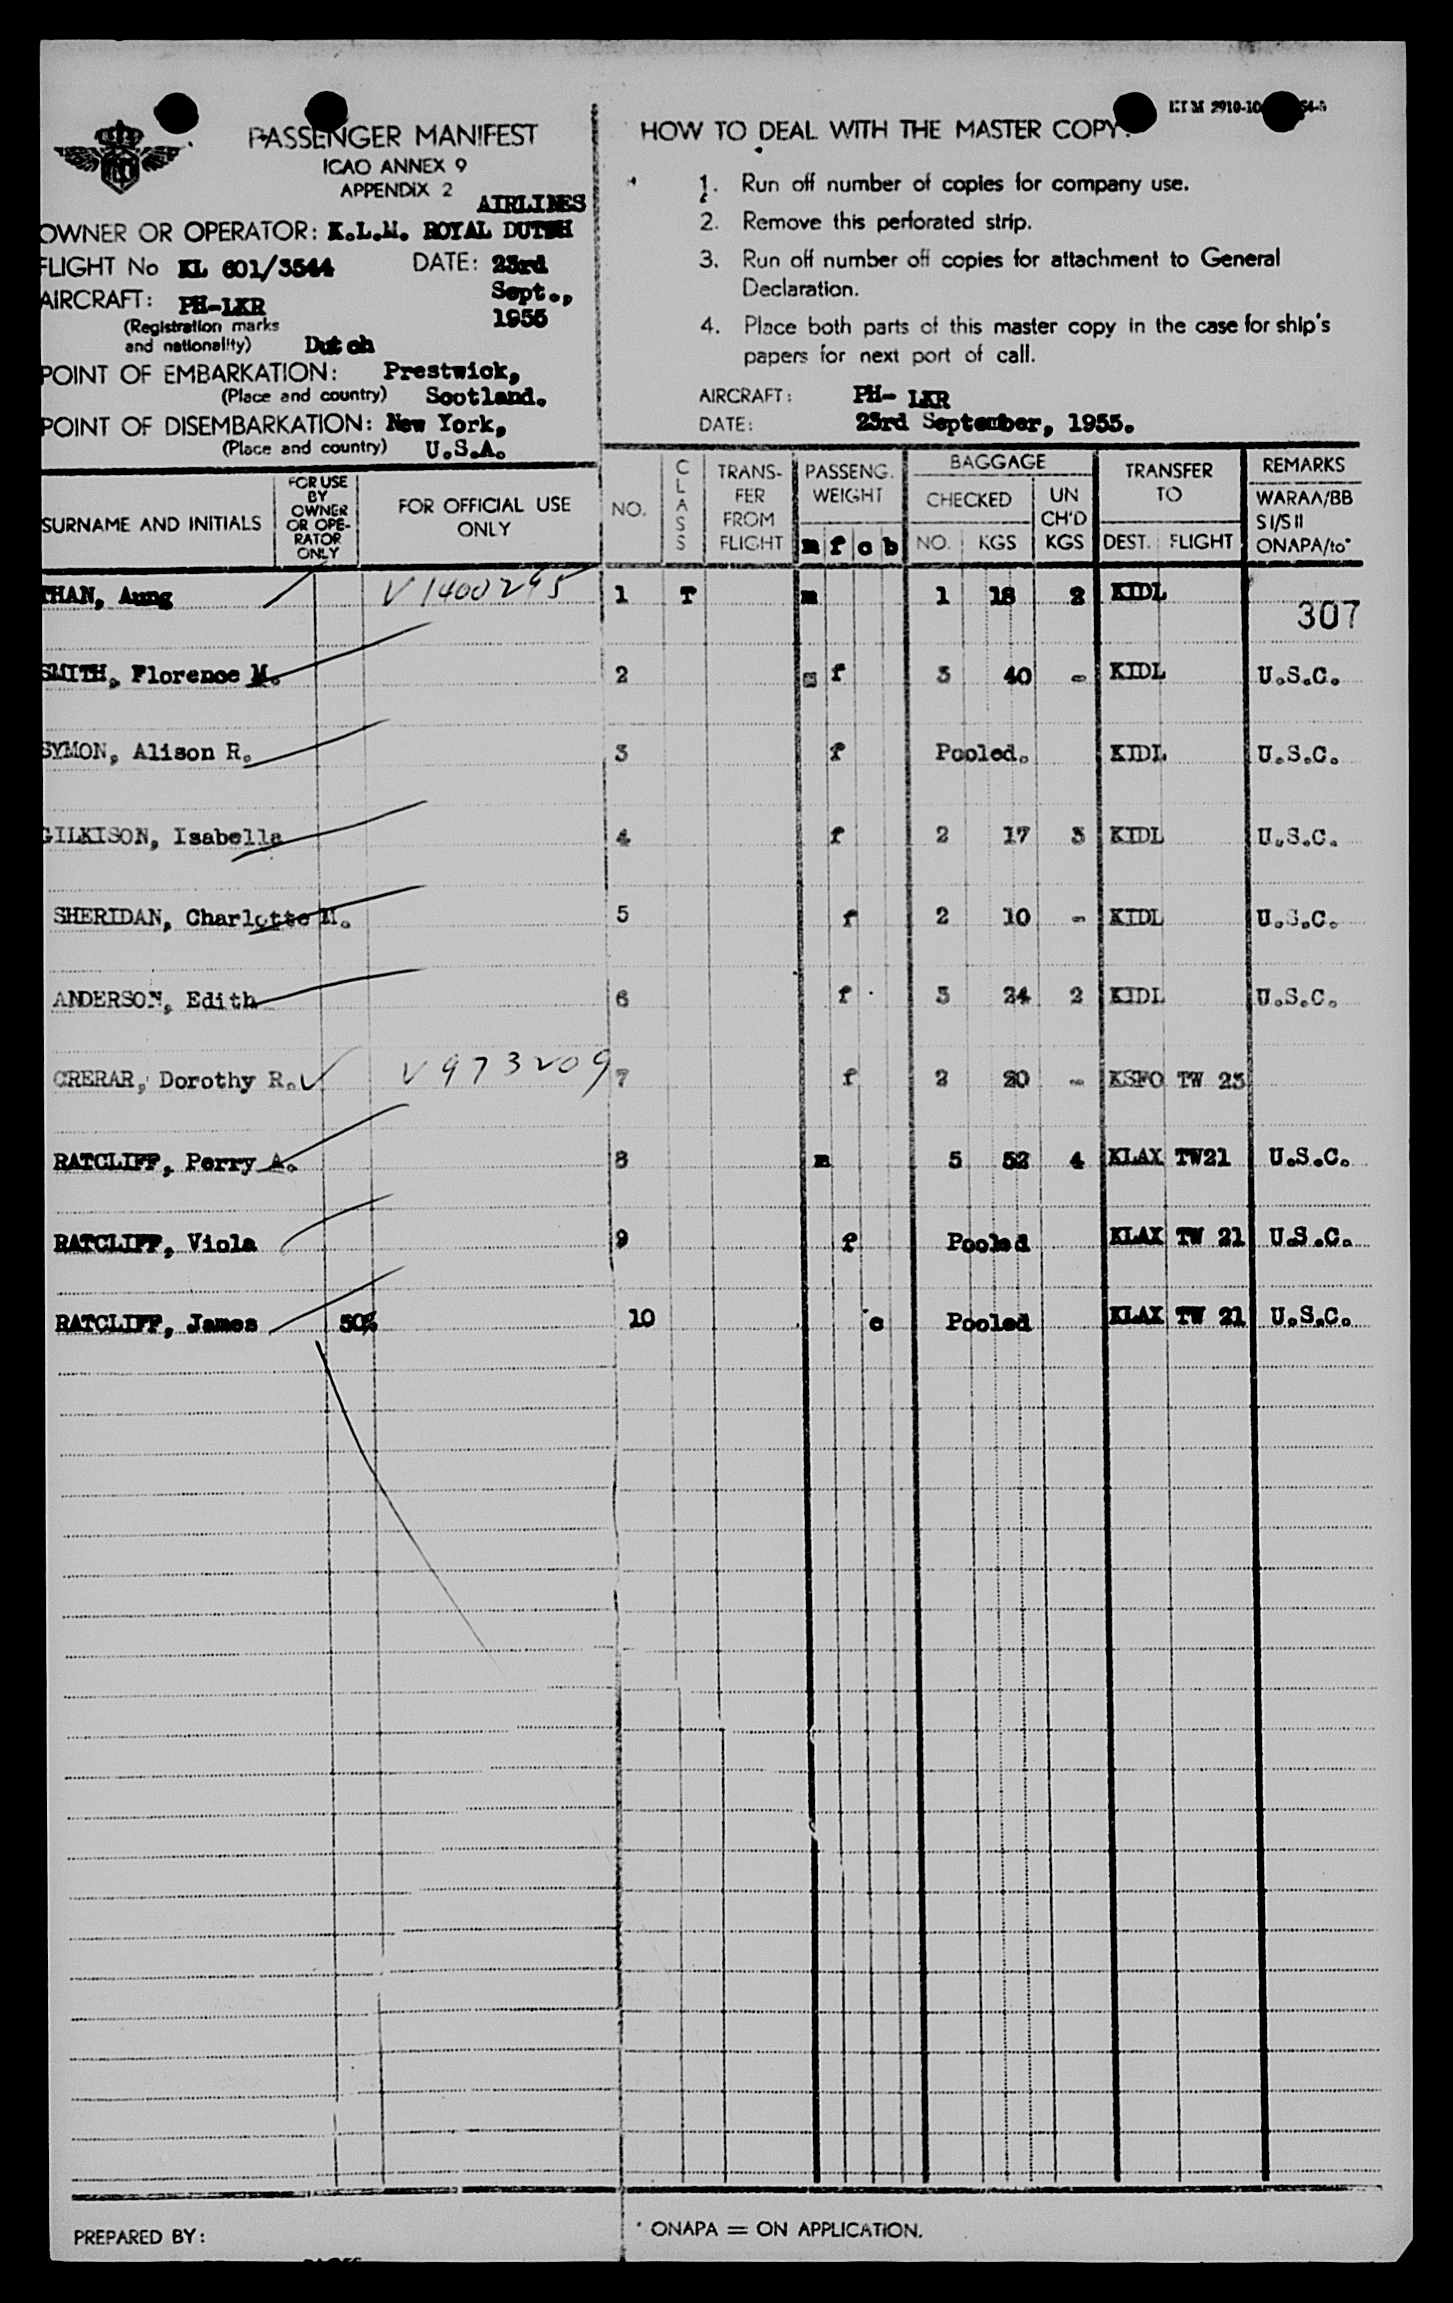 PASSENGER MANIFEST
ICAO ANNEX 9
APPENDIX 2
AIRLINES
OWNER OR OPERATOR: K.L.M. ROYAL DUTCH
FLIGHT No KL 601/3544 DATE: 23rd
Sept.,
AIRCRAFT: PH-LKR
1955
(Registration marks
and nationality) Dutch
POINT OF EMBARKATION: Prestwick,
(Place and country) Scotland.
POINT OF DISEMBARKATION: New York,
(Place and country) U.S.A.
HOW TO DEAL WITH THE MASTER COPY:
1. Run off number of copies for company use.
2. Remove this perforated strip.
3. Run off number off copies for attachment to General
Declaration.
4. Place both parts of this master copy in the case for ship's
papers for next port of call.
AIRCRAFT: PH- LKR
DATE: 23rd September, 1955.
SURNAME AND INITIALS FOR USE BY OWNER OR OPE-RATOR ONLY FOR OFFICIAL USE ONLY NO. CLASS TRANS-FER FROM FLIGHT PASSENG. WEIGHT m f c b BAGGAGE CHECKED NO. KGS UN CH'D KGS TRANSFER TO DEST. FLIGHT REMARKS WARAA/BB SI/SII ONAPA/to*
THAN, Aung V 1400295 1 T m 1 18 2 KIDL
307
SMITH, Florence M. 2 f 3 40 - KIDL U.S.C.
SYMON, Alison R. 3 f Pooled. KIDL U.S.C.
GILKISON, Isabella 4 f 2 17 3 KIDL U.S.C.
SHERIDAN, Charlotte M. 5 f 2 10 - KIDL U.S.C.
ANDERSON, Edith 6 f 3 24 2 KIDL U.S.C.
CRERAR, Dorothy R. V 973209 7 f 2 20 - KSFO TW 23
RATCLIFF, Perry A. 8 m 5 52 4 KLAX TW21 U.S.C.
RATCLIFF, Viola 9 f Pooled KLAX TW 21 U.S.C.
RATCLIFF, James 50% 10 c Pooled KLAX TW 21 U.S.C.
PREPARED BY:
* ONAPA = ON APPLICATION.